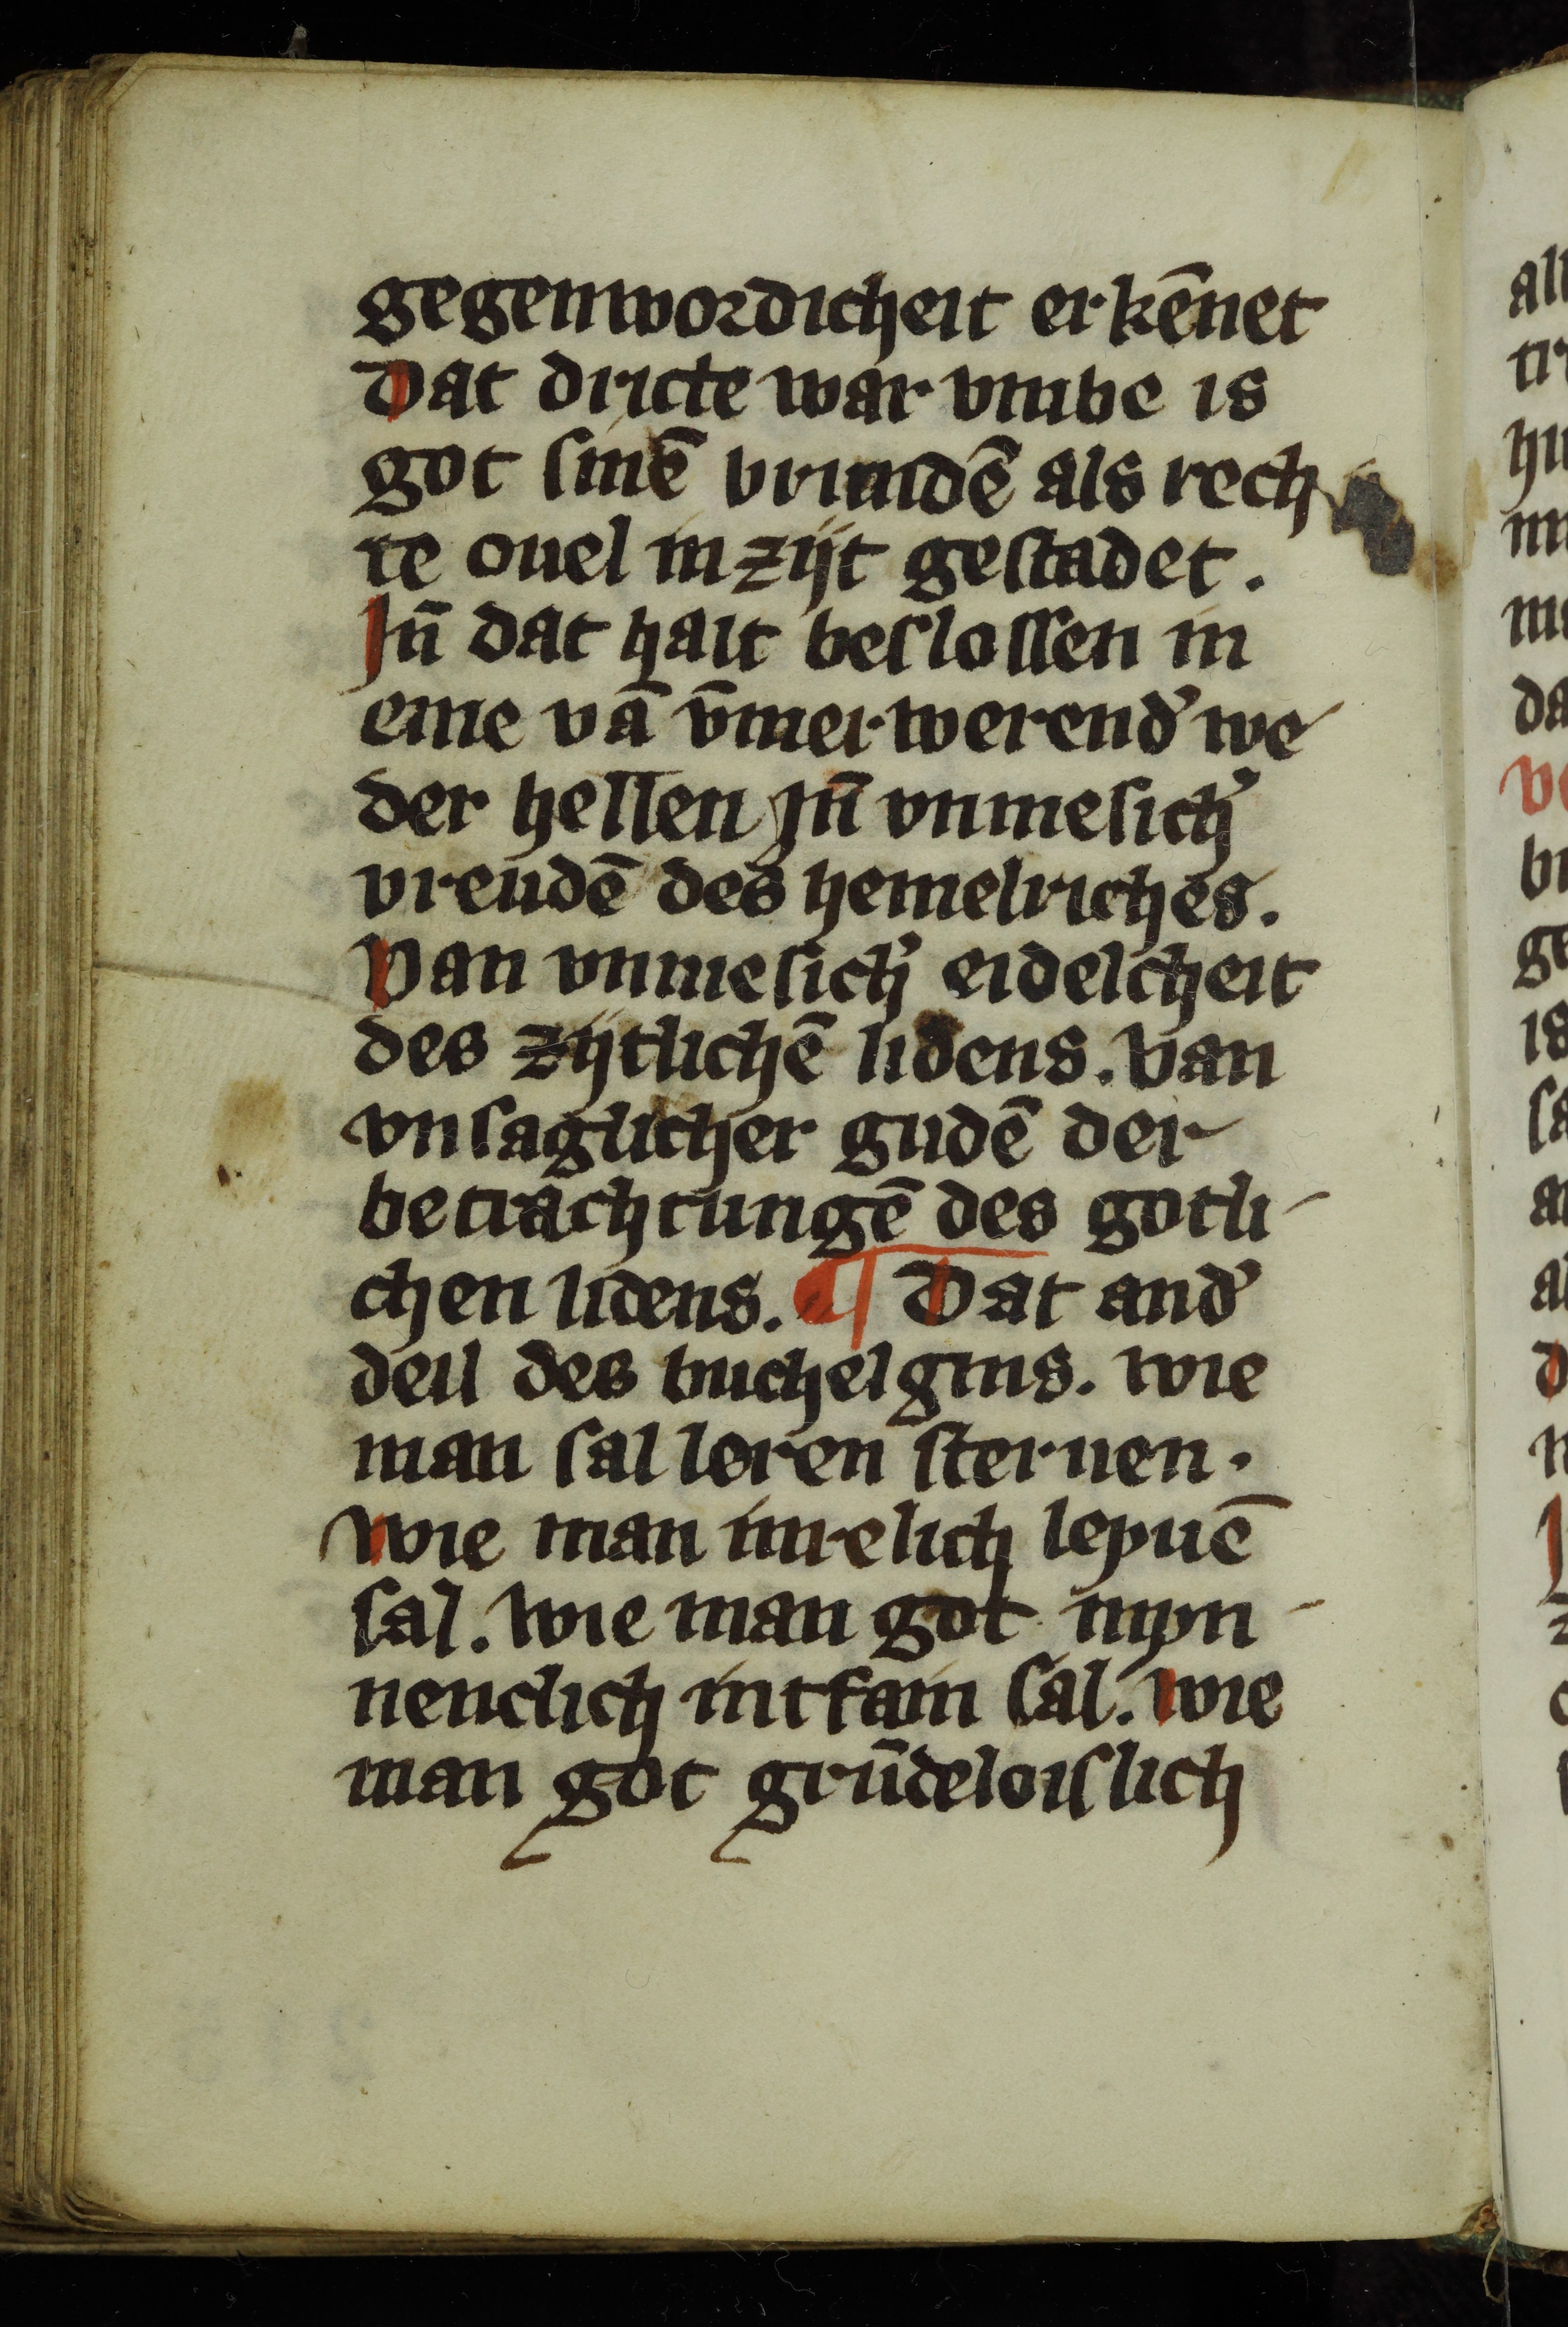 gegenwordicheit erkēnet
Dat dricte war vmbe is
got sinē vrundē als rech
te ouel in zijt gestadet.
Jn̄ dat halt beslossen in
eine vā v̄mer werend᾽ we
der hellen Jn̄ vnmesich᾽
vreudē des hemelriches.
Van vnmesich᾽ eidelcheit
des zijtlichē lidens. Van
vnsaglicher gudē der
betrachtungē des gotli-
chen lidens. ¶ Dat and᾽
deil des buchelgins. wie
man sal leren steruen.
Wie man inrelich leyuē
sal. wie man got myn-
nenclich intfain sal. wie
man got grūdeloislich